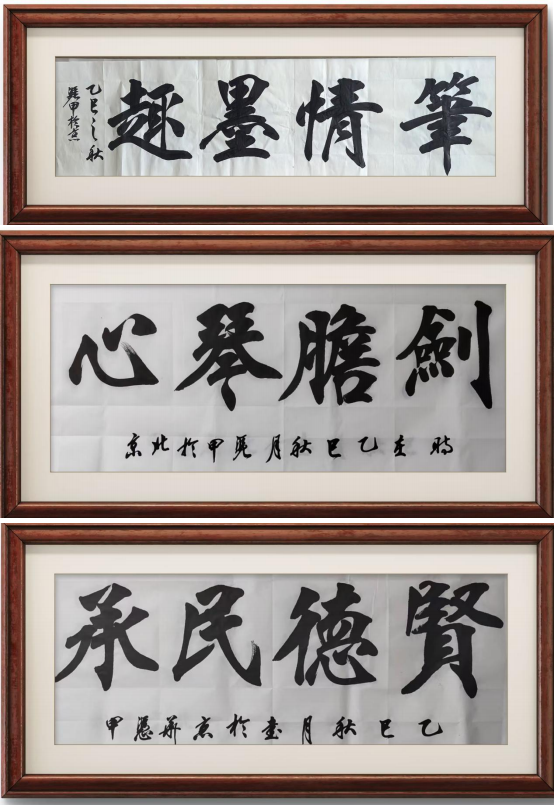 筆情墨趣
乙巳之秋
甲於京
劍膽琴心
時在乙巳秋月甲於北京
賢德民承
乙巳秋月書於京華甲